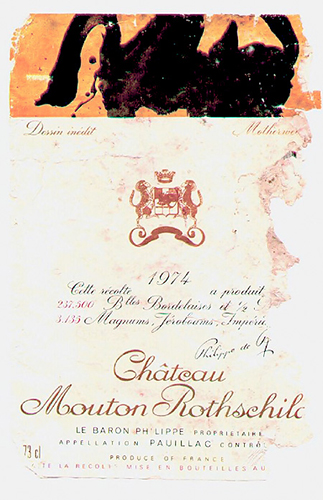 Dessin inédit Motherwe
1974
Cette récolte a produit
237.500 Blles Bordelaises et 1/2
3.135 Magnums, Jéroboams, Impéri
Philippe de
Château
Mouton Rothschild
LE BARON PHILIPPE PROPRIETAIRE
APPELLATION PAUILLAC CONTRÔ
PRODUCE OF FRANCE
73 cl
TE LA RECOLTE MISE EN BOUTEILLES AU